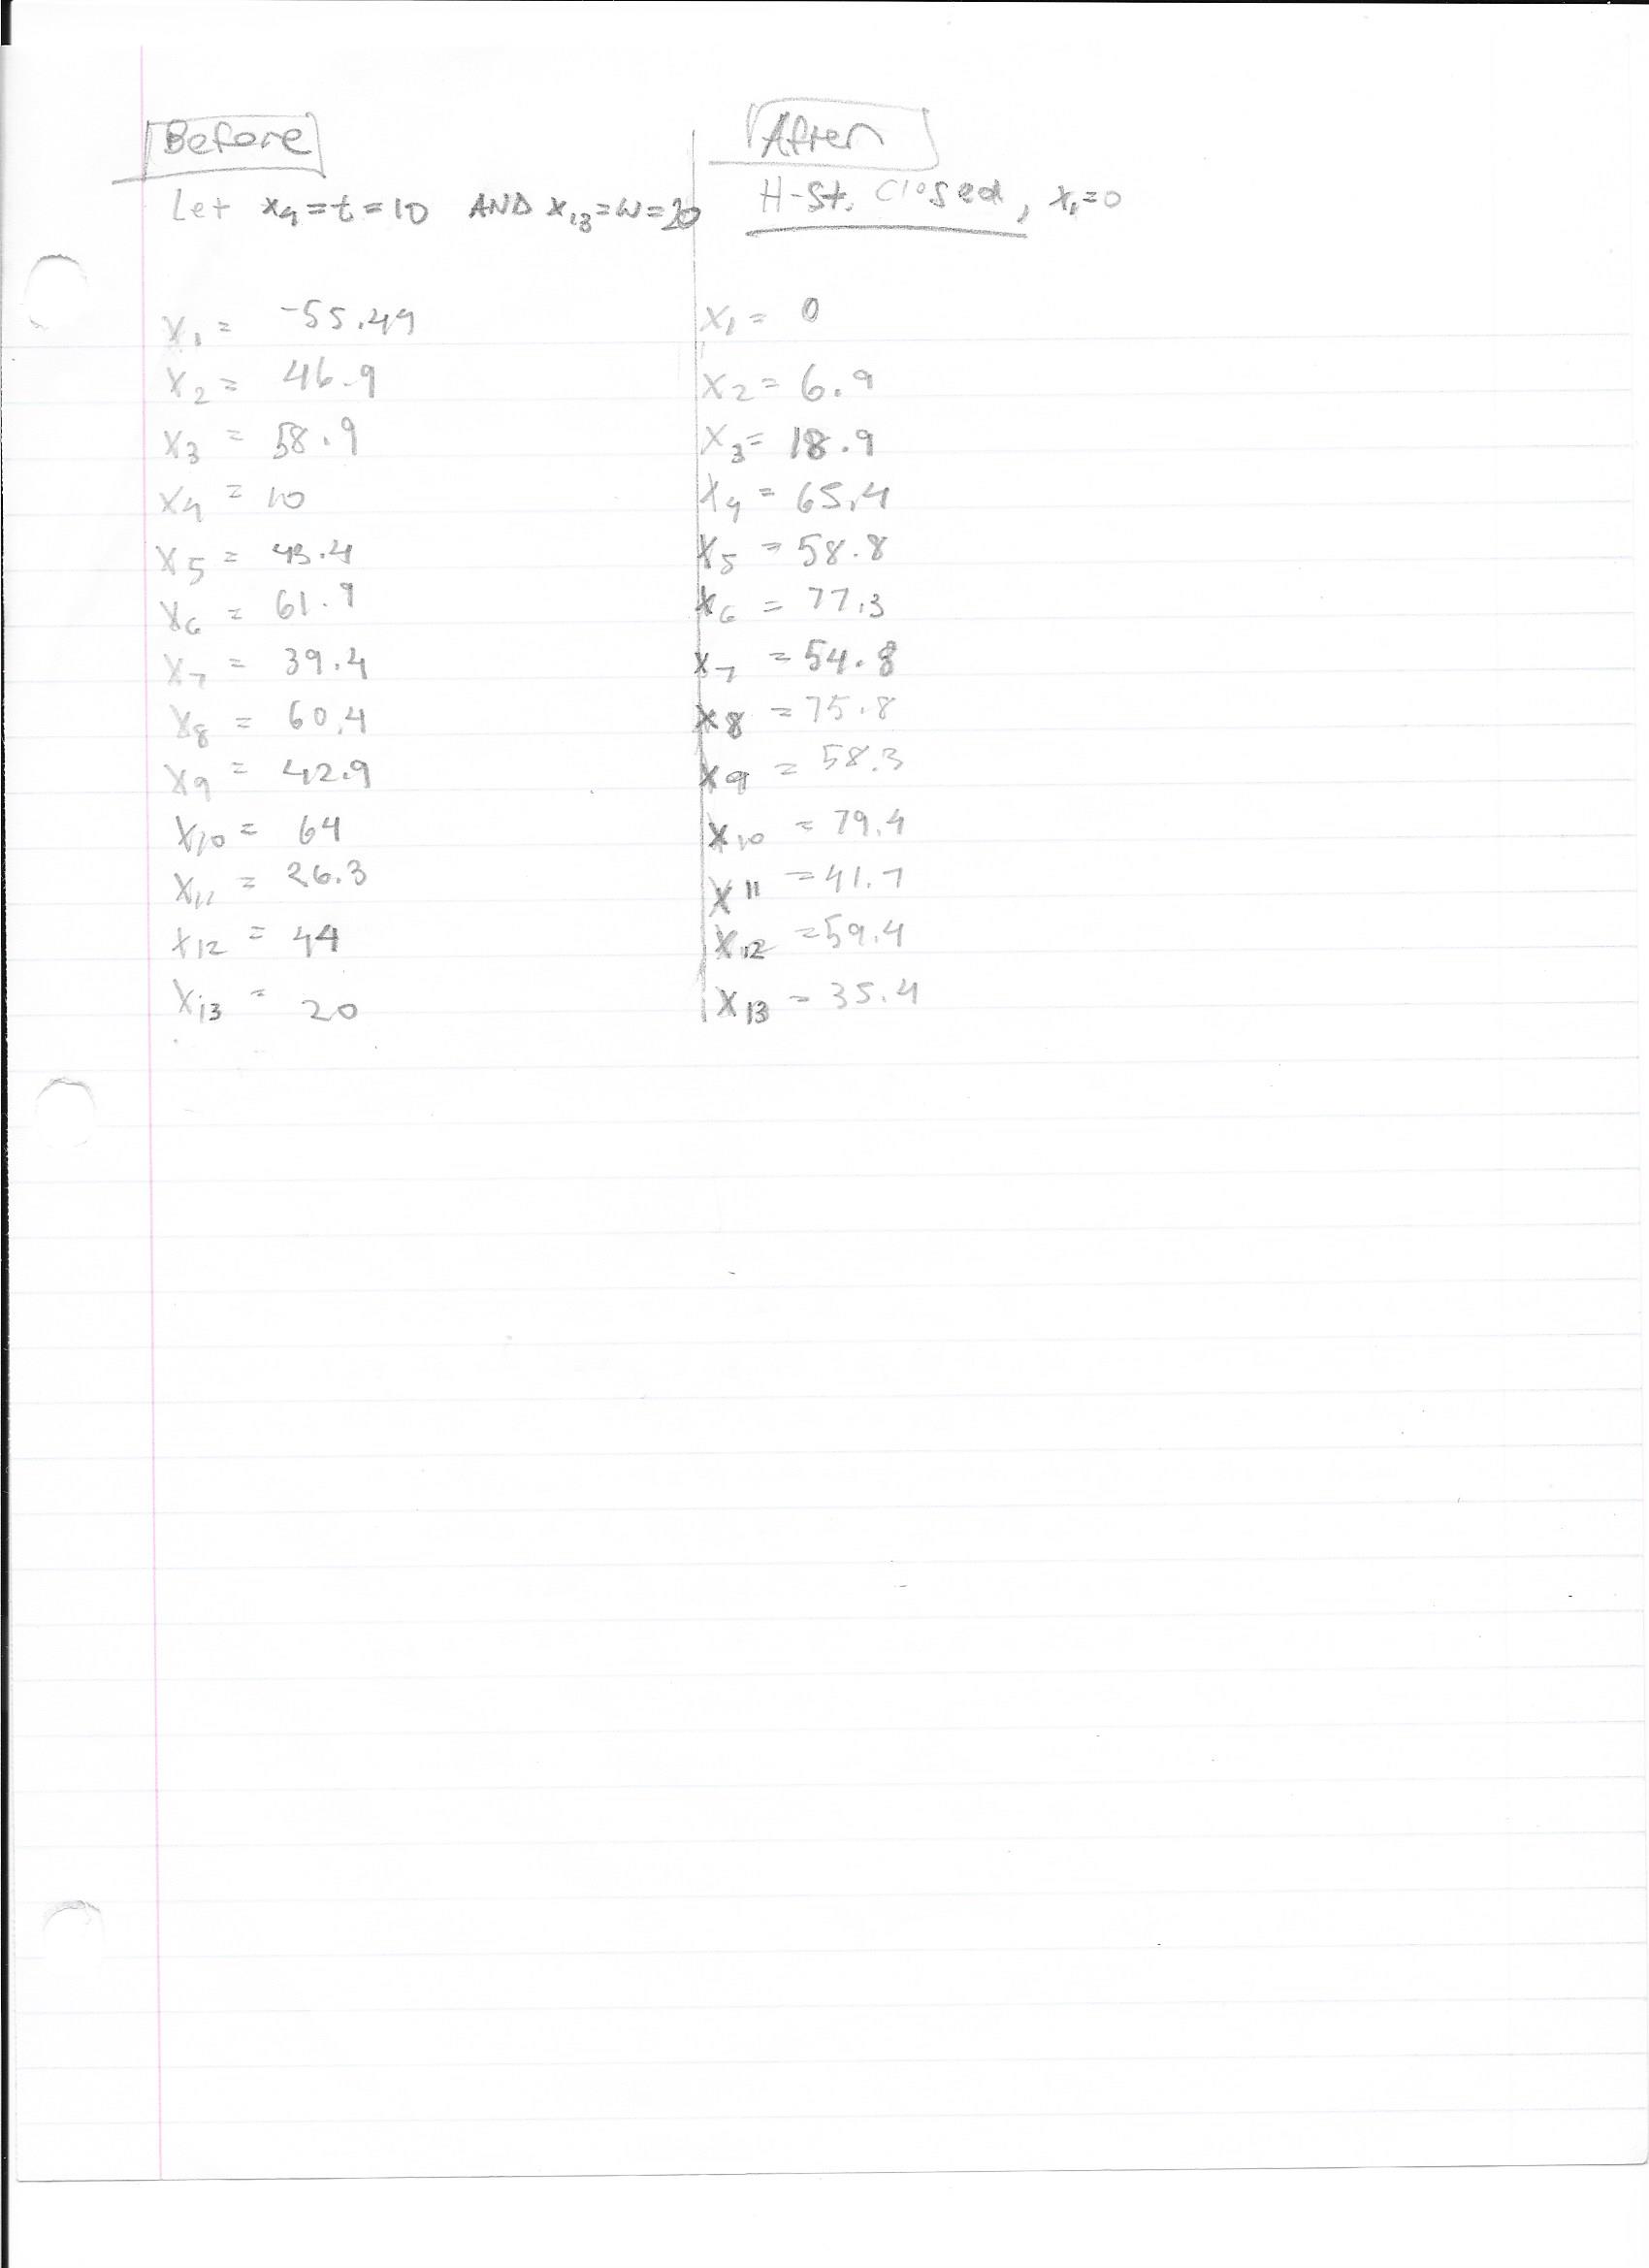 Before
Let x4 = t = 10 AND x13 = W = 20
x1 = -55.49
x2 = 46.9
x3 = 58.9
x4 = 10
x5 = 43.4
x6 = 61.9
x7 = 39.4
x8 = 60.4
x9 = 42.9
x10 = 64
x11 = 26.3
x12 = 44
x13 = 20
After
H-St. Closed, x1=0
x1 = 0
x2 = 6.9
x3 = 18.9
x4 = 65.4
x5 = 58.8
x6 = 77.3
x7 = 54.8
x8 = 75.8
x9 = 58.3
x10 = 79.4
x11 = 41.7
x12 = 59.4
x13 = 35.4